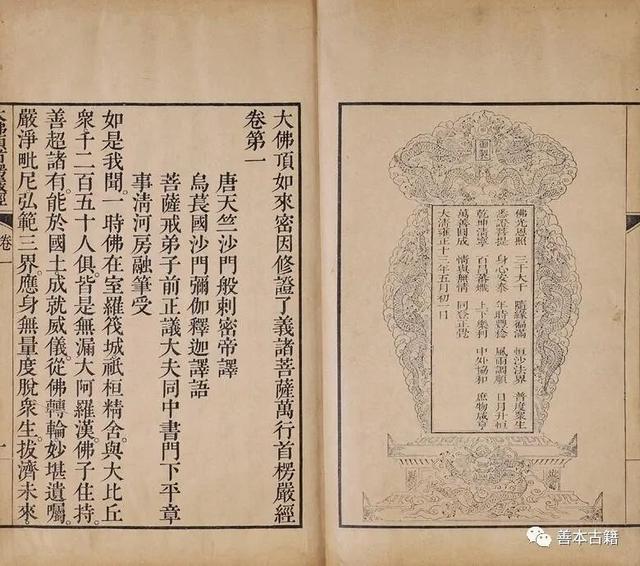 御製
佛光恩照 三千大千 隨緣福滿 恒沙法界 普度衆生
悉證菩提 身心安泰 年時豐稔 風雨調順 日月升恒
乾坤清寧 百昌蕃熾 上下樂利 中外協和 庶物咸亨
萬善圓成 情與無情 同登正覺
大清雍正十三年五月初一日
大佛頂如來密因修證了義諸菩薩萬行首楞嚴經
卷第一
唐天竺沙門般剌密帝譯
烏萇國沙門彌伽釋迦譯語
菩薩戒弟子前正議大夫同中書門下平章
事清河房融筆受
如是我聞。一時佛在室羅筏城祇桓精舍。與大比丘
衆千二百五十人俱。皆是無漏大阿羅漢。佛子住持。
善超諸有。能於國土成就威儀。從佛轉輪。妙堪遺囑。
嚴淨毗尼。弘範三界。應身無量。度脫衆生。拔濟未來。
大佛頂首楞嚴經
卷一
善本古籍